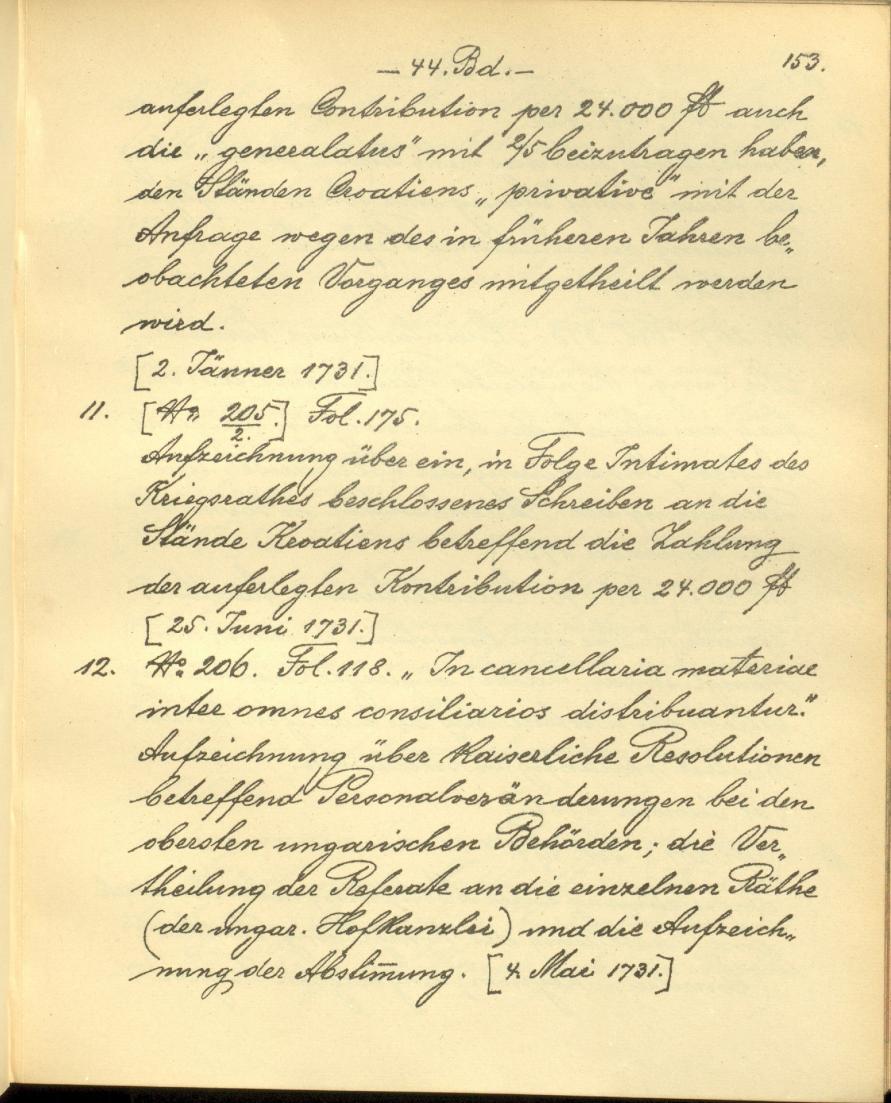 — 44. Bd. —
153.
auferlegten Contribution per 24.000 fl auch
die „generalatus" mit 2/5 beizutragen haben,
den Ständen Croatiens „privative" mit der
Anfrage wegen des in früheren Jahren be„
obachteten Vorganges mitgetheilt werden
wird.
[2. Jänner 1731.]
11. [No 205/2.] Fol. 175.
Aufzeichnung über ein, in Folge Intimates des
Kriegsrathes beschlossenes Schreiben an die
Stände Kroatiens betreffend die Zahlung
der auferlegten Kontribution per 24.000 fl
[25. Juni 1731.]
12. No 206. Fol. 118. „In cancellaria materiae
inter omnes consiliarios distribuantur."
Aufzeichnung über Kaiserliche Resolutionen
betreffend Personalveränderungen bei den
obersten ungarischen Behörden; die Ver„
theilung der Referate an die einzelnen Räthe
(der ungar. Hofkanzlei) und die Aufzeich„
nung der Abstim̅ung. [4. Mai 1731.]